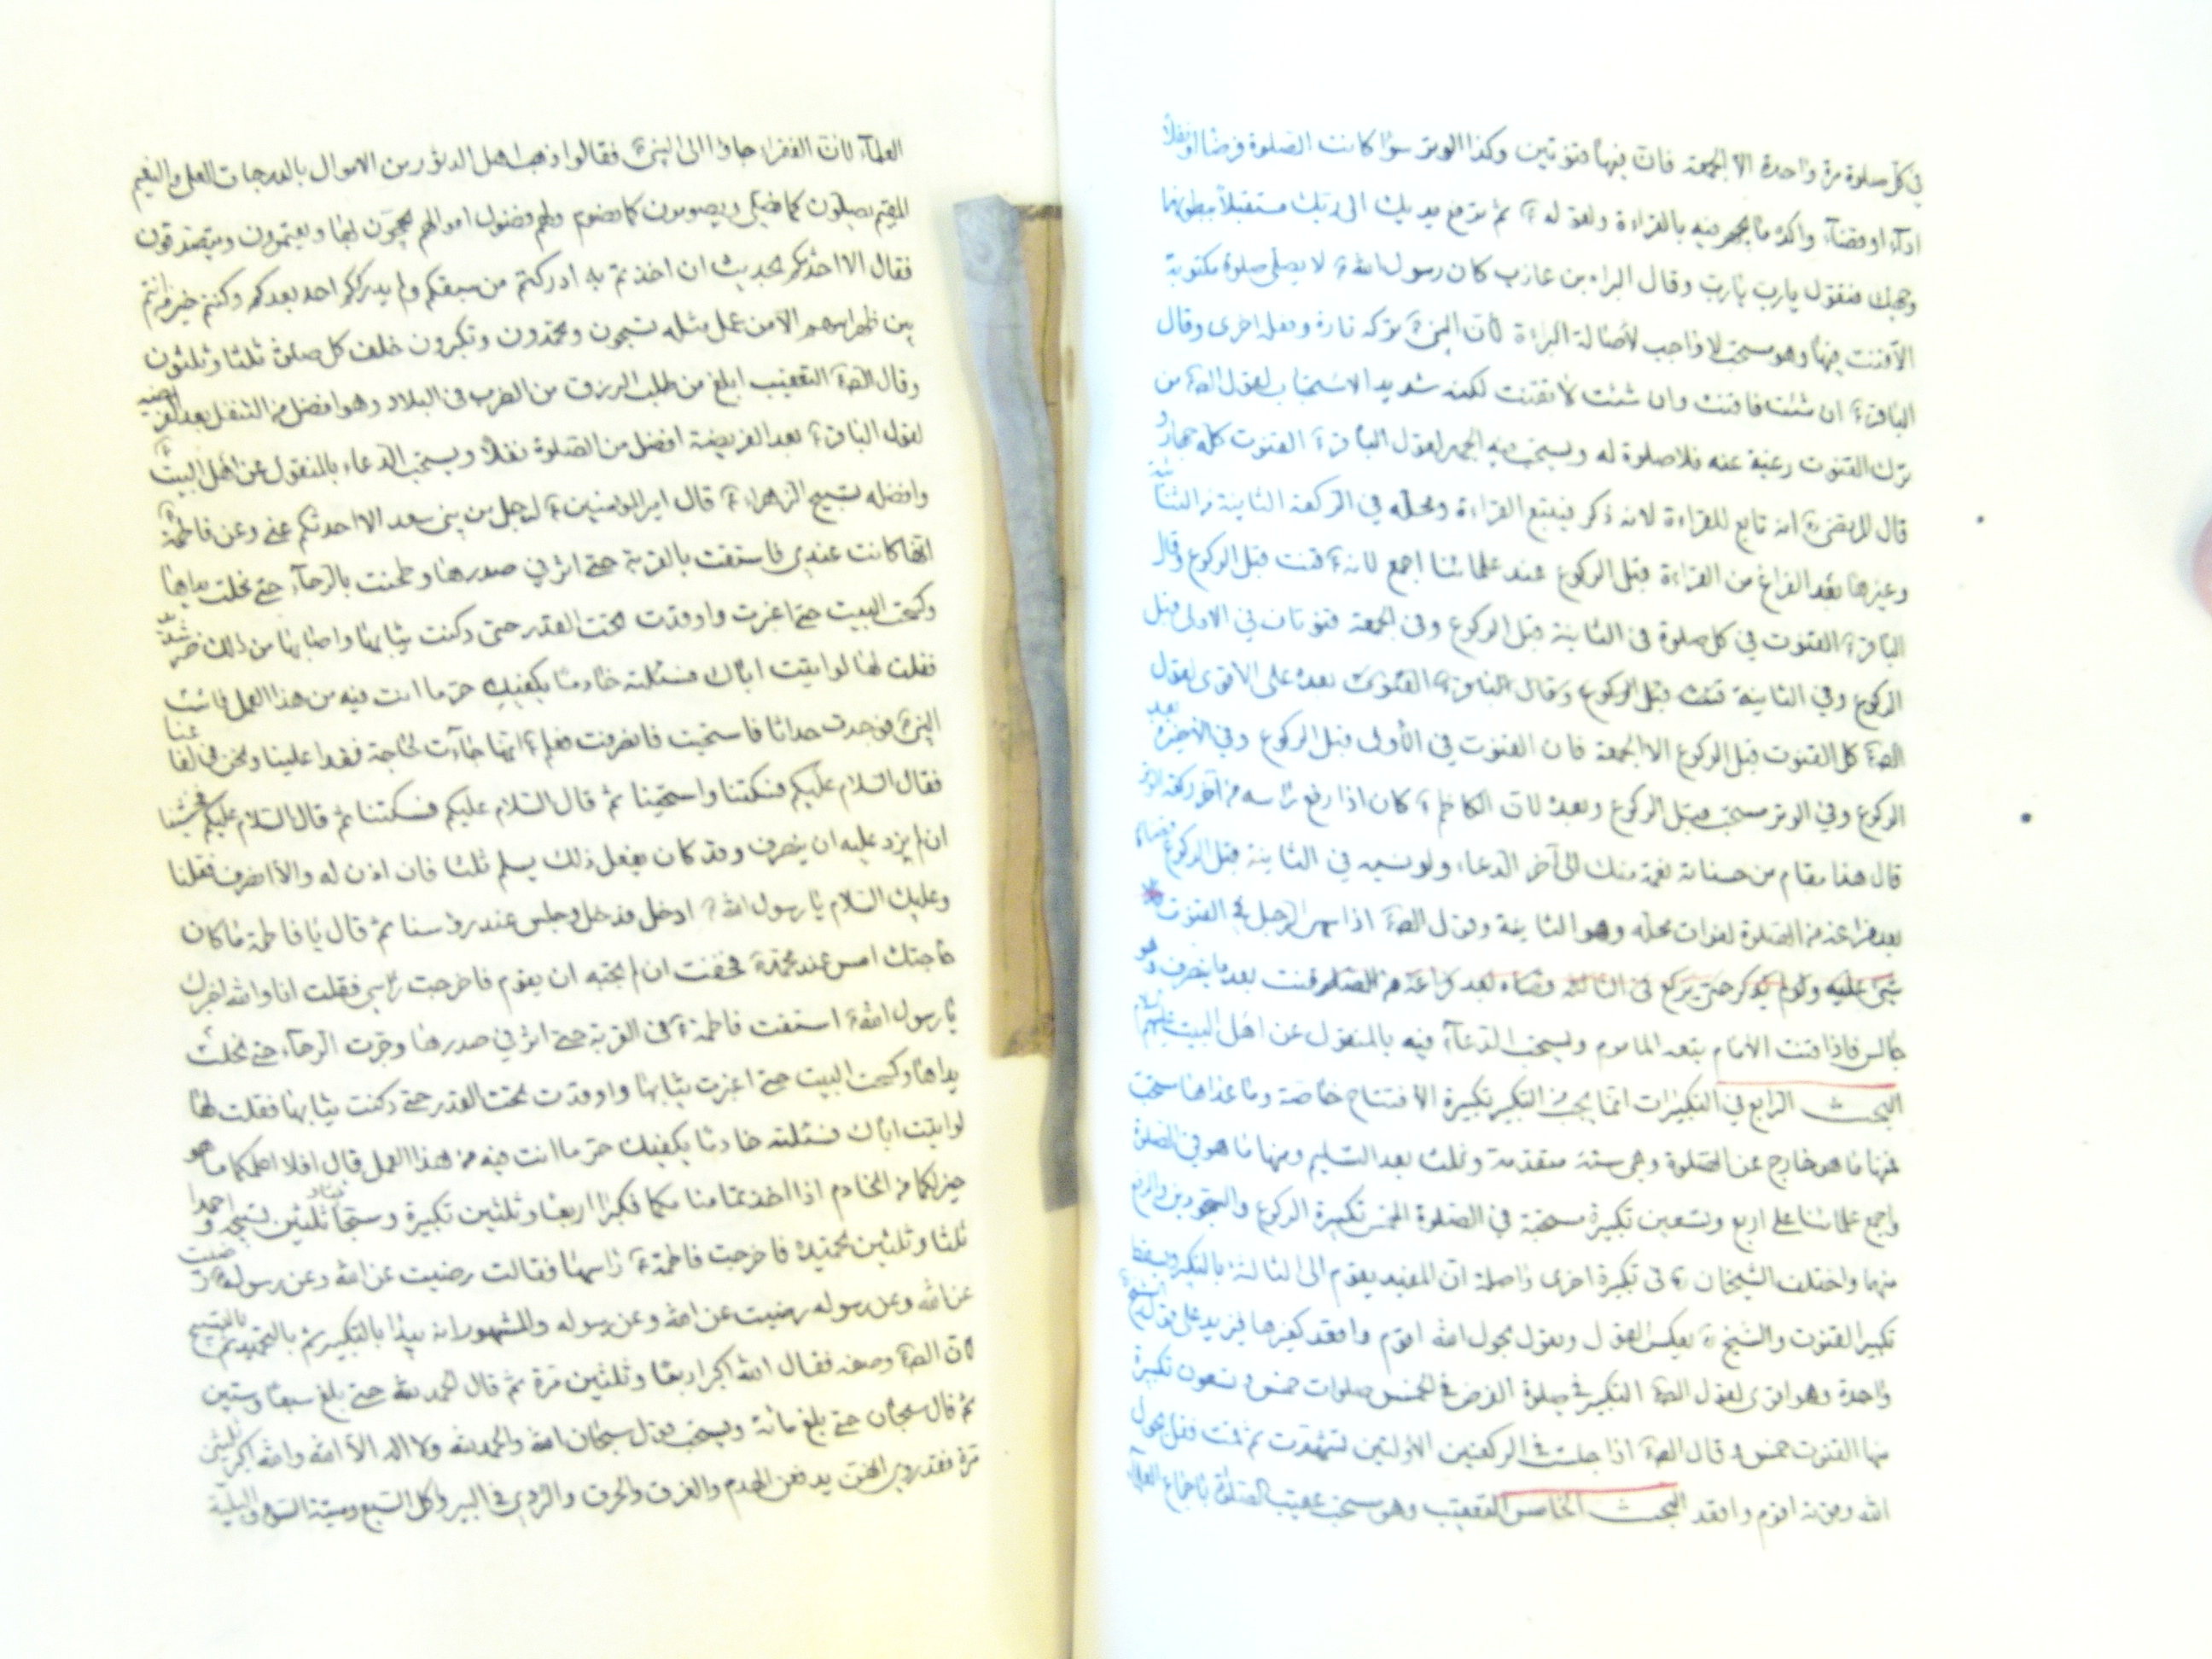 في كل صلوة مرة واحدة الا الجمعة فان فيها قنوتين وكذا الوتر سواء كانت الصلوة فرضا او نفلا
اداء او قضاء واكده ما يجهر فيه بالقراءة ولقوله ع ثم ترفع يديك الى ربك مستقبلا ببطونهما
وجهك فتقول يا رب يا رب وقال البراء بن عازب كان رسول الله ص لا يصلي صلوة مكتوبة
الا قنت فيها وهو مستحب لا واجب لأصالة البراءة لان النبي ص تركه تارة وفعله اخرى وقال
الباقر ع ان شئت فاقنت وان شئت لا تقنت لكنه شديد الاستحباب لقول الص ع من
ترك القنوت رغبة عنه فلا صلوة له ويستحب فيه الجهر لقول الباقر ع القنوت كله جهار و
قال المرتضى ره انه تابع للقراءة لانه ذكر فيتبع القراءة ومحله في الركعة الثانية من الثنائية
وغيرها بعد الفراغ من القراءة قبل الركوع عند علمائنا اجمع لانه ع قنت قبل الركوع وقال
الباقر ع القنوت في كل صلوة في الثانية قبل الركوع وفي الجمعة قنوتان في الاولى قبل
الركوع وفي الثانية بعده على الاقوى لقول
الص ع كل القنوت قبل الركوع الا الجمعة فان القنوت في الأولى قبل الركوع وفي الأخيرة بعد
الركوع وفي الوتر مستحب قبل الركوع وبعده لان الكاظم ع كان اذا رفع راسه من آخر ركعة الوتر
قال هذا مقام من حسناته نعمة منك الى آخر الدعاء ولو نسيه في الثانية قبل الركوع قضاه
بعد فراغه من الصلوة لفوات محله وهو الثانية وقول الص ع اذا سهى الرجل في القنوت
قنت بعد ما ينصرف وهو
جالس فاذا قنت الامام يتبعه الماموم ويستحب الدعاء فيه بالمنقول عن اهل البيت عليهم السلام
البحث الرابع في التكبيرات انما يجب من التكبير تكبيرة الافتتاح خاصة وما عداها مستحب
فمنها ما هو خارج عن الصلوة وهي ستة متقدمة وثلث بعد التسليم ومنها ما هو في الصلوة
واجمع علمائنا على اربع وتسعين تكبيرة مستحبة في الصلوة الخمس تكبيرة الركوع والسجودين والرفع
منهما واختلف الشيخان ره في تكبيرة اخرى واصله ان المفيد يقوم الى الثالثة بالتكبير ويسقط
تكبير القنوت والشيخ ره بعكس القول ويقول بحول الله اقوم واقعد كغيرها فيزيد على قول الشيخ
واحدة وهو اقوى لقول الص ع التكبير في صلوة الفرض في الخمس صلوات خمس وتسعون تكبيرة
منها القنوت خمس وقال الص ع اذا جلست في الركعتين الاولتين تشهدت ثم قمت فقل بحول
الله وقوته اقوم واقعد البحث الخامس التعقيب وهو مستحب عقيب الصلوة باجماع العلماء
العلماء لان الفقراء جاؤا الى النبي ص فقالوا ذهب اهل الدثور من الاموال بالدرجات العلى والنعيم
المقيم يصلون كما نصلي ويصومون كما نصوم ولهم فضول اموالهم يحجون بها ويعتمرون ويتصدقون
فقال الا احدثكم بحديث ان اخذتم به ادركتم من سبقكم ولم يدرككم احد بعدكم وكنتم خير من انتم
بين ظهرانيهم الا من عمل مثله تسبحون وتحمدون وتكبرون خلف كل صلوة ثلثا وثلثون
وقال الص ع التعقيب ابلغ من طلب الرزق من الضرب في البلاد وهو افضل من التنفل بعد الفريضة
لقول الباقر ع بعد الفريضة افضل من الصلوة نفلا ويستحب الدعاء بالمنقول عن اهل البيت ع
وافضله تسبيح الزهراء ع قال امير المؤمنين ع لرجل من بني سعد الا احدثكم عني وعن فاطمة ع
انها كانت عندي فاستقت بالقربة حتى اثر في صدرها وطحنت بالرحاء حتى مجلت يداها
وكسحت البيت حتى اغبرت واوقدت تحت القدر حتى دكنت ثيابها واصابها من ذلك ضر شديد
فقلت لها لو اتيت اباك فسئلته خادما يكفيك حر ما انت فيه من هذا العمل فاتت
النبي ص فوجدت حداثا فاستحيت فانصرفت فعلم ع انها جاءت لحاجة فغدا علينا ونحن في لفاعنا
فقال السلام عليكم فسكتنا واستحيينا ثم قال السلام عليكم فسكتنا ثم قال السلام عليكم فخشينا
ان لم يرد عليه ان ينصرف وقد كان يفعل ذلك يسلم ثلثا فان اذن له والا انصرف فقلنا
وعليك السلام يا رسول الله ص ادخل فدخل وجلس عند رؤسنا ثم قال يا فاطمة ما كان
حاجتك امس عند محمد ص فخفت ان لم نجبه ان يقوم فاخرجت راسي فقلت انا والله اخبرك
يا رسول الله ص استقت فاطمة ع في القربة حتى اثر في صدرها وجرت الرحاء حتى مجلت
يداها وكسحت البيت حتى اغبرت ثيابها واوقدت تحت القدر حتى دكنت ثيابها فقلت لها
لو اتيت اباك فسئلته خادما يكفيك حر ما انت فيه من هذا العمل قال افلا اعلمكما ما هو
خير لكما من الخادم اذا اخذتما منامكما فكبرا اربعا وثلثين تكبيرة وسبحا ثلثا وثلثين تسبيحة واحمدا
ثلثا وثلثين تحميدة فاخرجت فاطمة ع راسها فقالت رضيت عن الله وعن رسوله رضيت
عن الله وعن رسوله رضيت عن الله وعن رسوله والمشهور انه يبدا بالتكبير ثم بالتحميد ثم بالتسبيح
لان الص ع وصفه فقال الله اكبر اربعا وثلثين مرة ثم قال الحمد لله حتى بلغ سبعا وستين
ثم قال سبحان حتى بلغ مائة ويستحب قول سبحان الله والحمد لله ولا اله الا الله والله اكبر ثلثين
مرة فقد روي انهن يدفعن الهدم والغرق والحرق والتردي في البير واكل السبع وميتة السوء والبلية